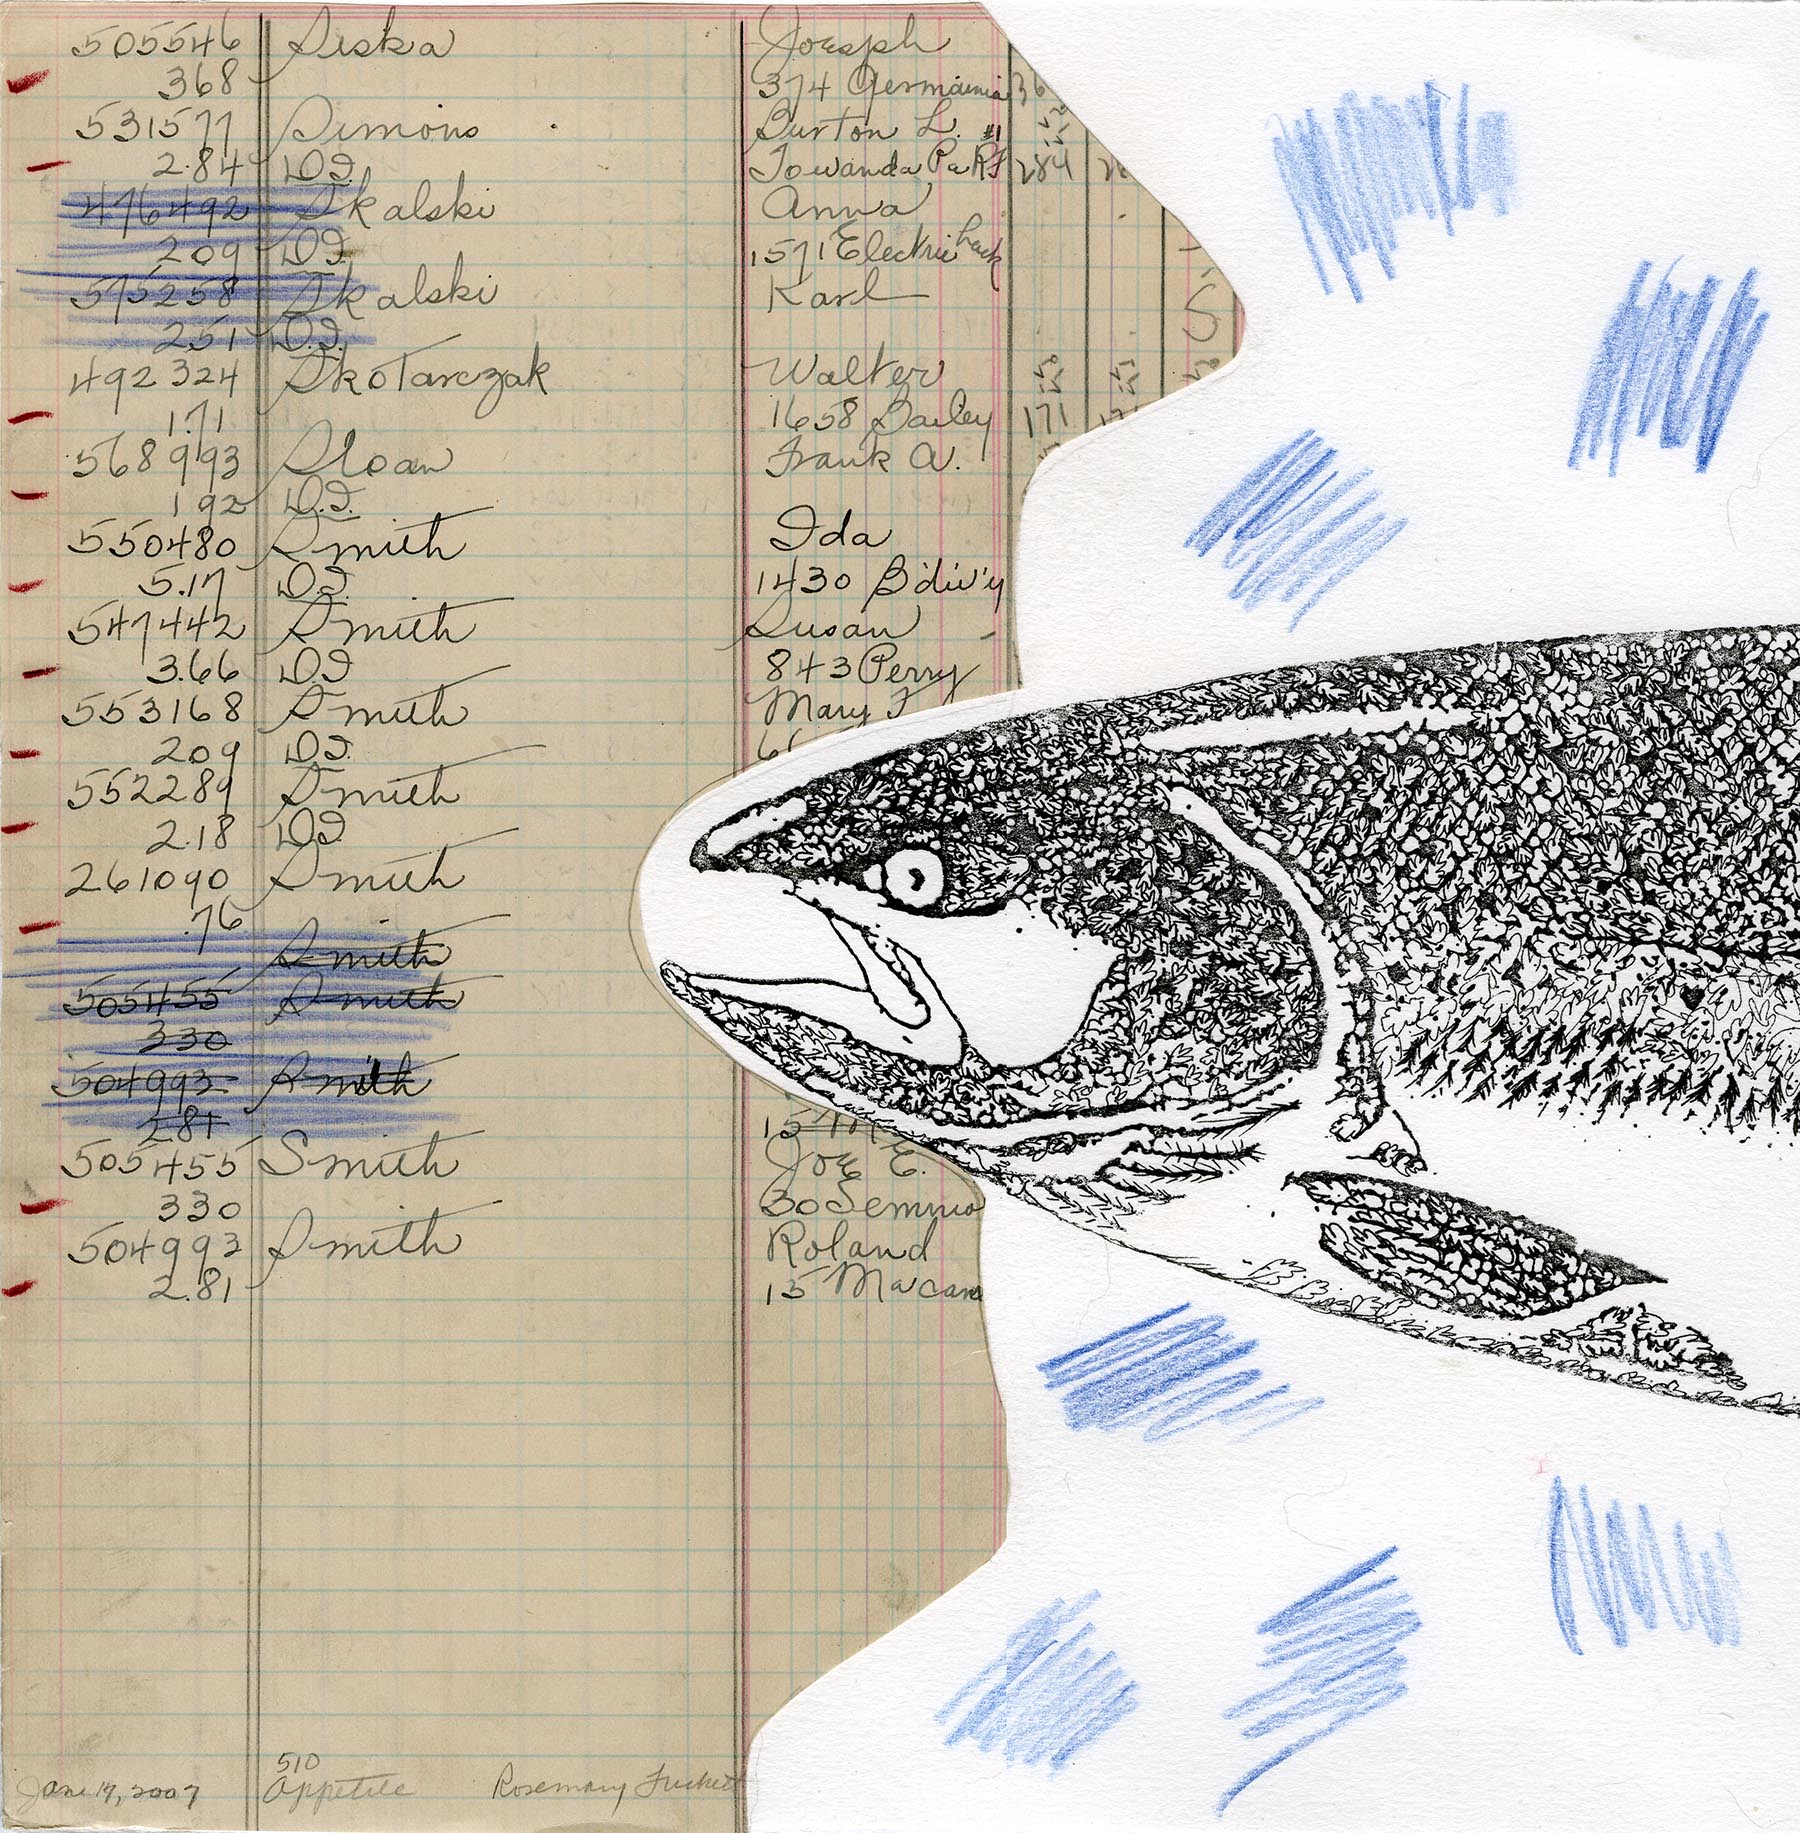 505546 Siska Joesph
368 374 Germania 36
531577 Simons Burton L. #1
2.84 D.I. Towanda Pa RF 284
476492 Skalski Anna
209 D.I. 1571 Electric
575258 Skalski Karl
251 D.I.
492324 Skotarczak Walter
1.71 1658 Bailey 171
568993 Sloan Frank A.
192 D.I. 
550480 Smith Ida
5.17 D.I. 1430 B'div'y
547442 Smith Susan
3.66 D.I 843 Perry
553168 Smith Mary F
209 D.I.
552289 Smith
2.18 D.I.
261090 Smith
.76
Smith
505455 Smith
330
504993 Smith
281 15
505455 Smith Joe E.
330 30 Semino
504993 Smith Roland
2.81 15 Macam
510
June 14, 2007 Appetite Rosemary